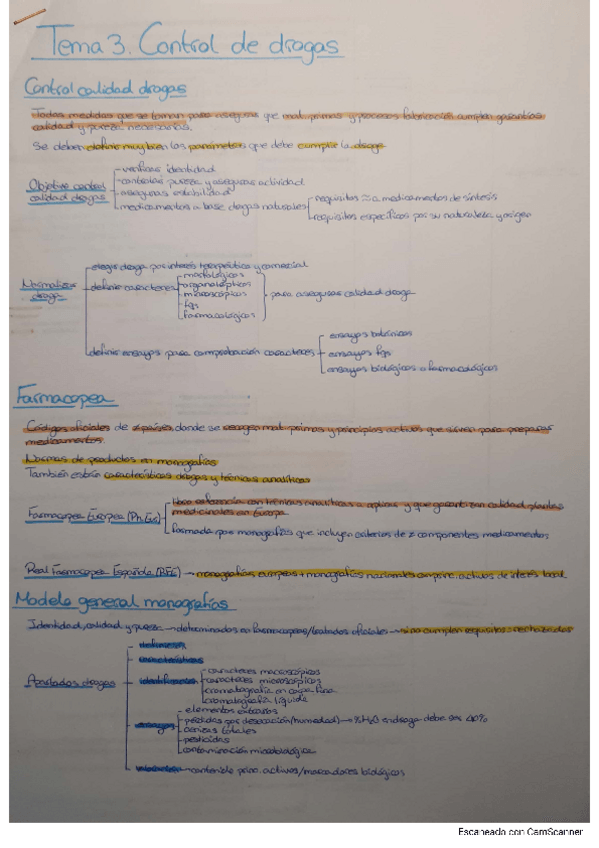 Tema 3. Control de drogas
Control calidad drogas
Todas medidas que se toman para asegurar que mat. primas y procesos fabricación cumplen garantías
calidad y pureza necesarias.
Se deben definir muy bien los parámetros que debe cumplir la droga
Objetivo control
calidad drogas
verificar identidad
controlar pureza y asegurar actividad
asegurar estabilidad
medicamentos a base drogas naturales
requisitos ≈ a medicamentos de síntesis
requisitos específicos por su naturaleza y origen
Normalizar
droga
elegir droga por interés terapéutico y comercial
definir caracteres
morfológicos
organolépticos
microscópicos
fqs
farmacológicos
para asegurar calidad droga
definir ensayos para comprobación caracteres
ensayos botánicos
ensayos fqs
ensayos biológicos o farmacológicos
Farmacopea
Códigos oficiales de ≠ países, donde se recogen mat. primas y principios activos que sirven para preparar
medicamentos.
Normas de productos en monografías
También están características drogas y técnicas analíticas
Farmacopea Europea (Ph.Eur)
libro referencia con técnicas analíticas a aplicar y que garantizan calidad plantas
medicinales en Europa
formada por monografías que incluyen criterios de ≠ componentes medicamentos
Real Farmacopea Española (RFE) → monografías europeas + monografías nacionales con princ. activos de interés local
Modelo general monografías
Identidad, calidad y pureza → determinados en farmacopeas/tratados oficiales → si no cumplen requisitos: rechazadas
Apartados drogas
definición
características
identificación
caracteres macroscópicos
caracteres microscópicos
cromatografía en capa fina
cromatografía líquida
ensayos
elementos extraños
pérdidas por desecación (humedad) → % H2O en droga debe ser <10%
cenizas totales
pesticidas
contaminación microbiológica
valoración → contenido princ. activos/marcadores biológicos
Escaneado con CamScanner